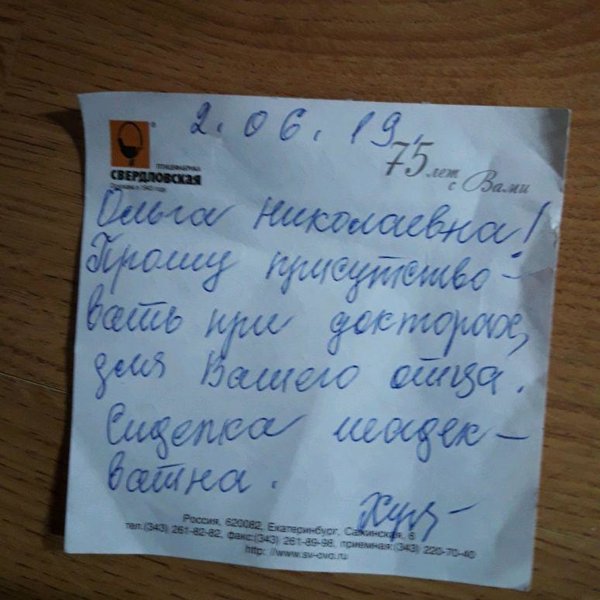 2.06.19.
®
ПТИЦЕФАБРИКА
СВЕРДЛОВСКАЯ
75 лет
с Вами
Ольга Николаевна!
Прошу присутство-
вать при докторах,
для Вашего отца.
Сиделка неадек-
ватна.
Россия, 620082, Екатеринбург, Сажинская, 6
тел:(343) 261-82-82, факс:(343) 261-89-98, приемная:(343) 220-70-40
http: //www.sv-ovo.ru